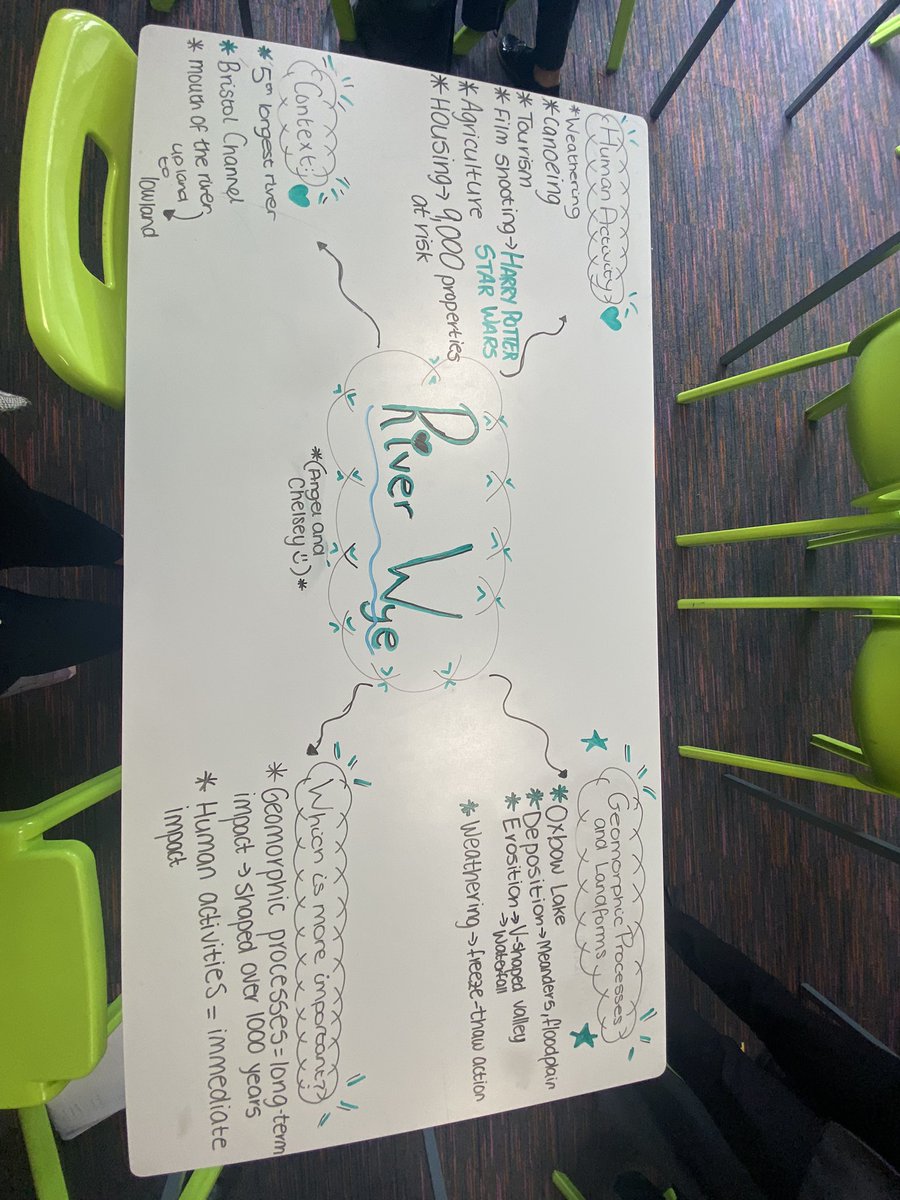 River Wye
*(Angel and
Chelsey☺)*
Human Activity
*Weathering
*Canoeing
*Tourism
*Film shooting→HARRY POTTER
STAR WARS
*Agriculture
*Housing→9,000 properties
at risk
Context:)
*5th longest river
*Bristol Channel
*mouth of the river,
upland
to
lowland
Geomorphic Processes
and Landforms
*Oxbow Lake
*Deposition→meanders, floodplain
*Erosition→V-shaped valley
→Waterfall
*Weathering→freeze-thaw action
Which is more important?
*Geomorphic processes=long-term
impact→shaped over 1000 years
*Human activities = immediate
impact